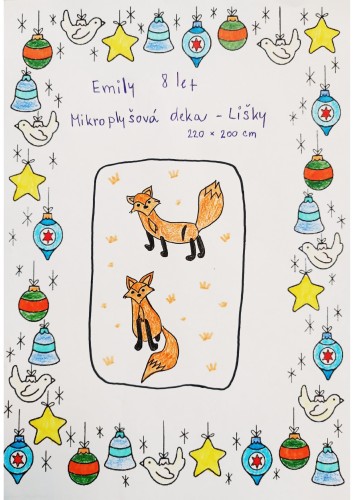 Emily 8 let
Mikroplyšová deka - Lišky
220 × 200 cm